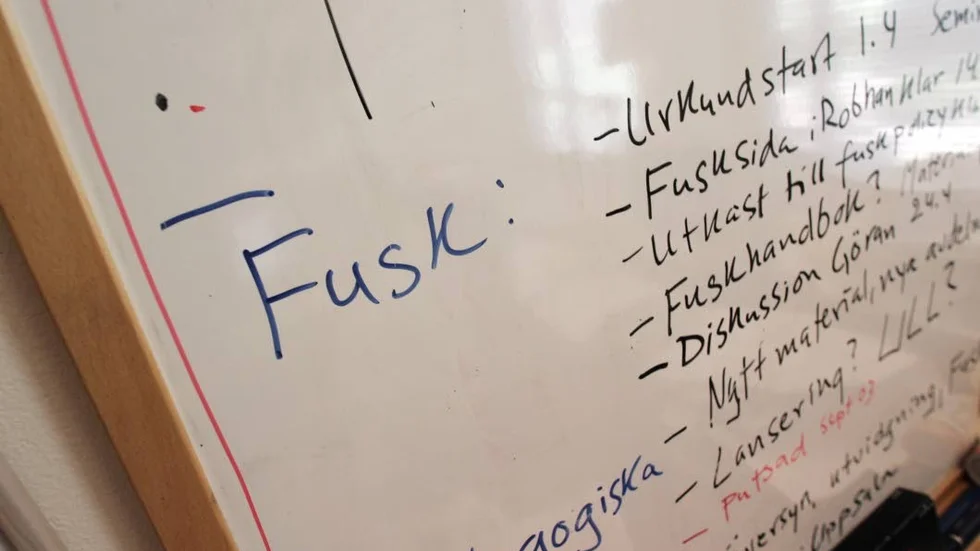 Fusk:
- Urkundstart 1.4 Semi
- Fusksida i Robhan klar 14
- Utkast till fuskpolicy kl
- Fuskhandbok? Material
- Diskussion Göran 24.4
- Nytt material, nya avdeln
- Lansering? ULL?
- Putsad sept 03
översyn, utvidgning, För
Uppsala
agogiska